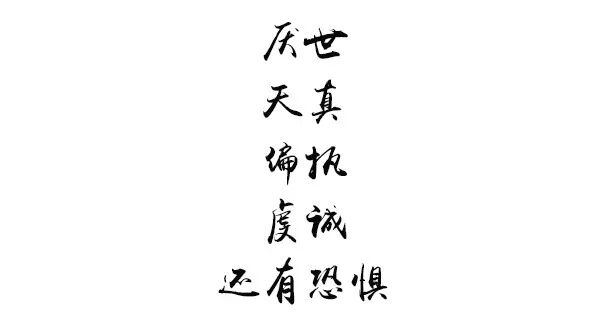 厌世
天真
偏执
虔诚
还有恐惧